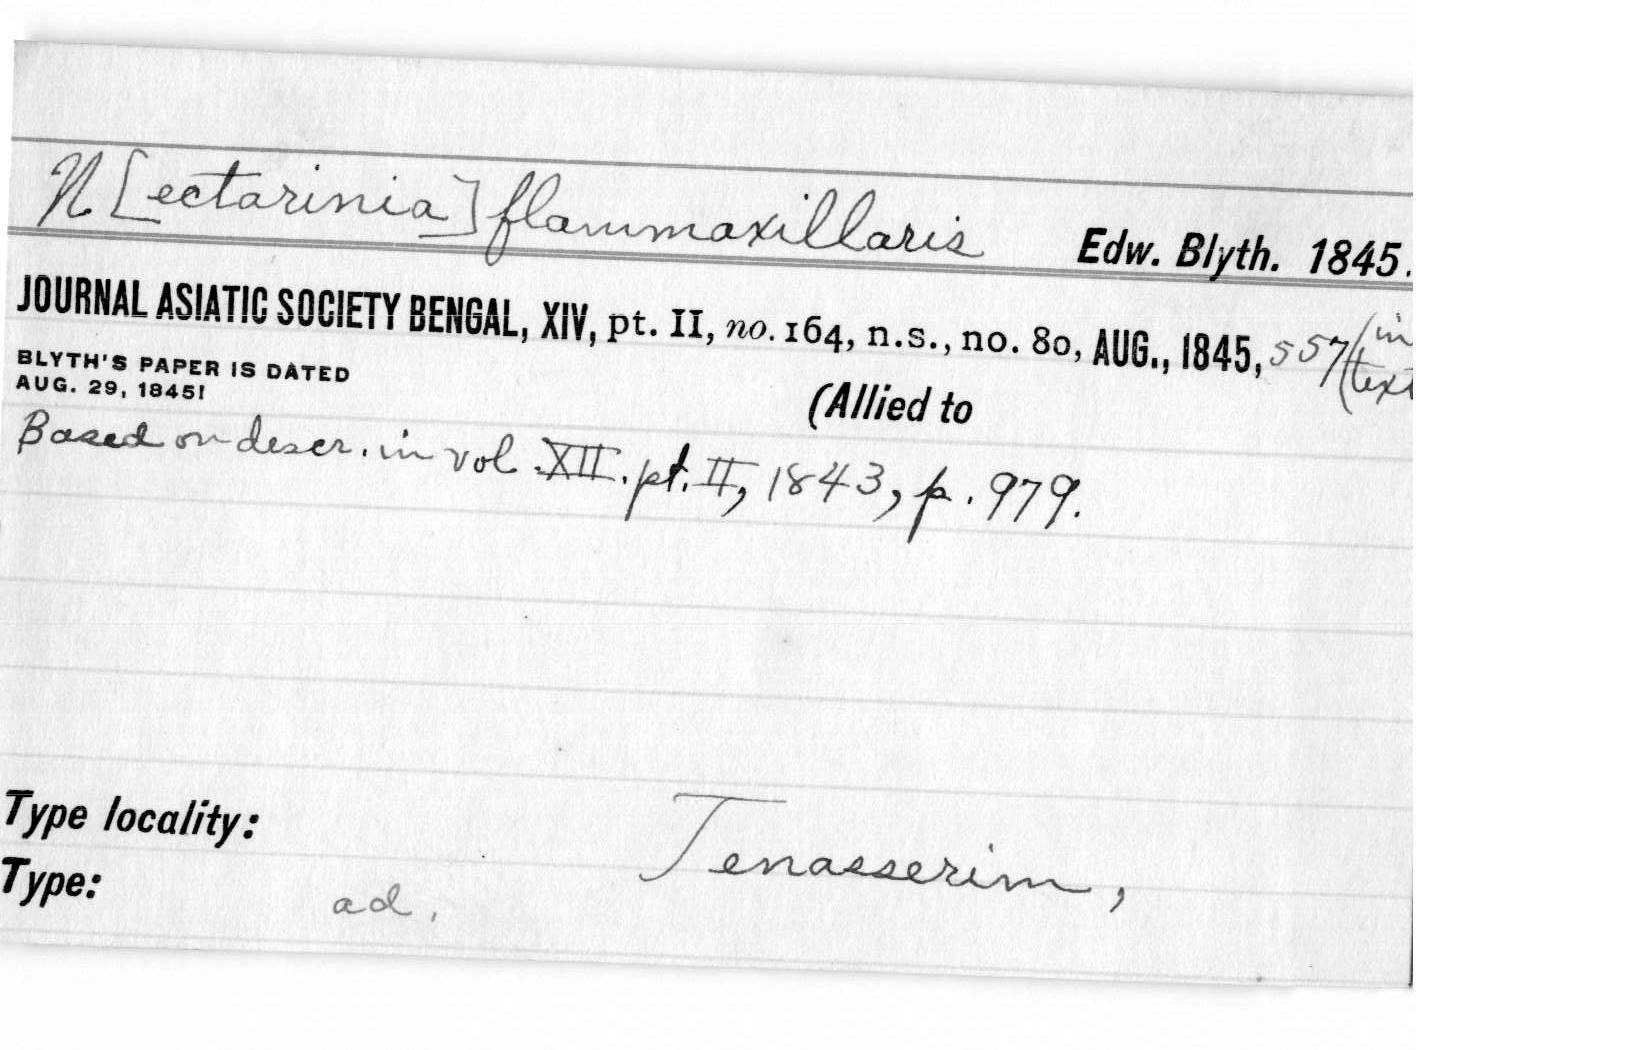 N[ectarinia] flammaxillaris Edw. Blyth. 1845.
JOURNAL ASIATIC SOCIETY BENGAL, XIV, pt. II, no. 164, n.s., no. 80, AUG., 1845, 557 (in text
BLYTH'S PAPER IS DATED
AUG. 29, 1845!
(Allied to
Based on descr. in vol. XII. pt. II, 1843, p. 979.
Type locality: Tenasserim,
Type: ad.